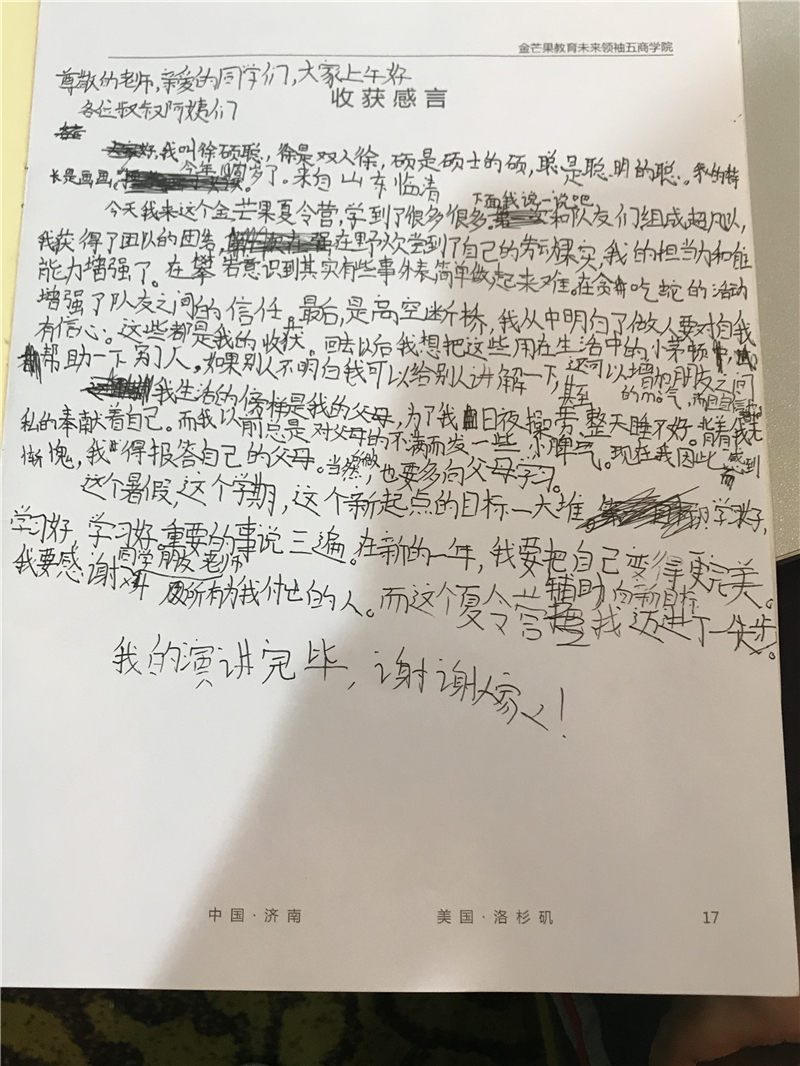 金芒果教育未来领袖五商学院
尊敬的老师,亲爱的同学们,大家上午好
收获感言
各位叔叔阿姨们
我叫徐硕聪,徐是双人徐,硕是硕士的硕,聪是聪明的聪。我的特
长是画画。今年 岁了。来自山东临清
下面我说一说吧
今天我来这个金芒果夏令营,学到了很多很多, 和队友们组成超凡队,
我获得了团队的团结, 在野炊尝到了自己的劳动果实,我的担当力和
能力增强了。在攀岩意识到其实有些事外表简单做起来难。在贪吃蛇的活动
增强了队友之间的信任。最后,是高空断桥,我从中明白了做人要对自我
有信心。这些都是我的收获。回去以后我想把这些用在生活中的
帮助一下别人。如果别人不明白我可以给别人讲解一下,还可以增加朋友之间
我生活的榜样是我的父母,为了我日夜操劳,整天睡不好。
私的奉献着自己。而我以前总是对父母的不满而发一些小脾气。现在我因此感到
惭愧,我得报答自己的父母。当然,也要多向父母学习。
这个暑假,这个学期,这个新起点的目标一大堆, 学习好,
学习好,学习好。重要的事说三遍。在新的一年,我要把自己变得更完美。
我要感谢 同学 朋友 老师 及所有为我付出的人。而这个夏令营 辅助 我 向新目标 迈进了一大步。
我的演讲完毕,谢谢大家!
中国·济南 美国·洛杉矶 17